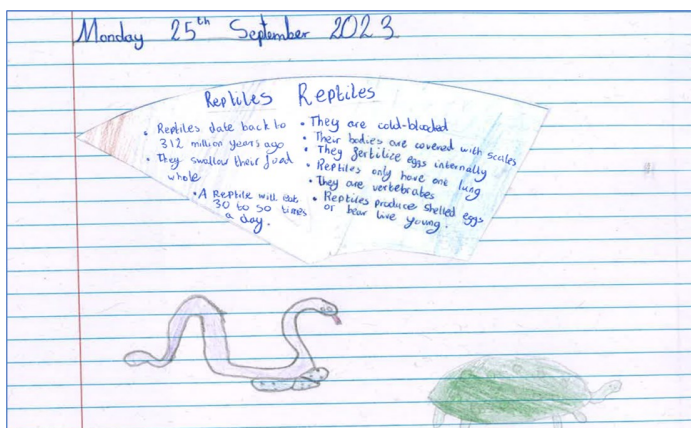 Monday 25th September 2023
Reptiles Reptiles
• Reptiles date back to
312 million years ago
• They swallow their food
whole
• A Reptile will eat
30 to 50 times
a day.
• They are cold-blooded
• Their bodies are covered with scales
• They fertilize eggs internally
• Reptiles only have one lung
• They are vertebrates
• Reptiles produce shelled eggs
or bear live young.